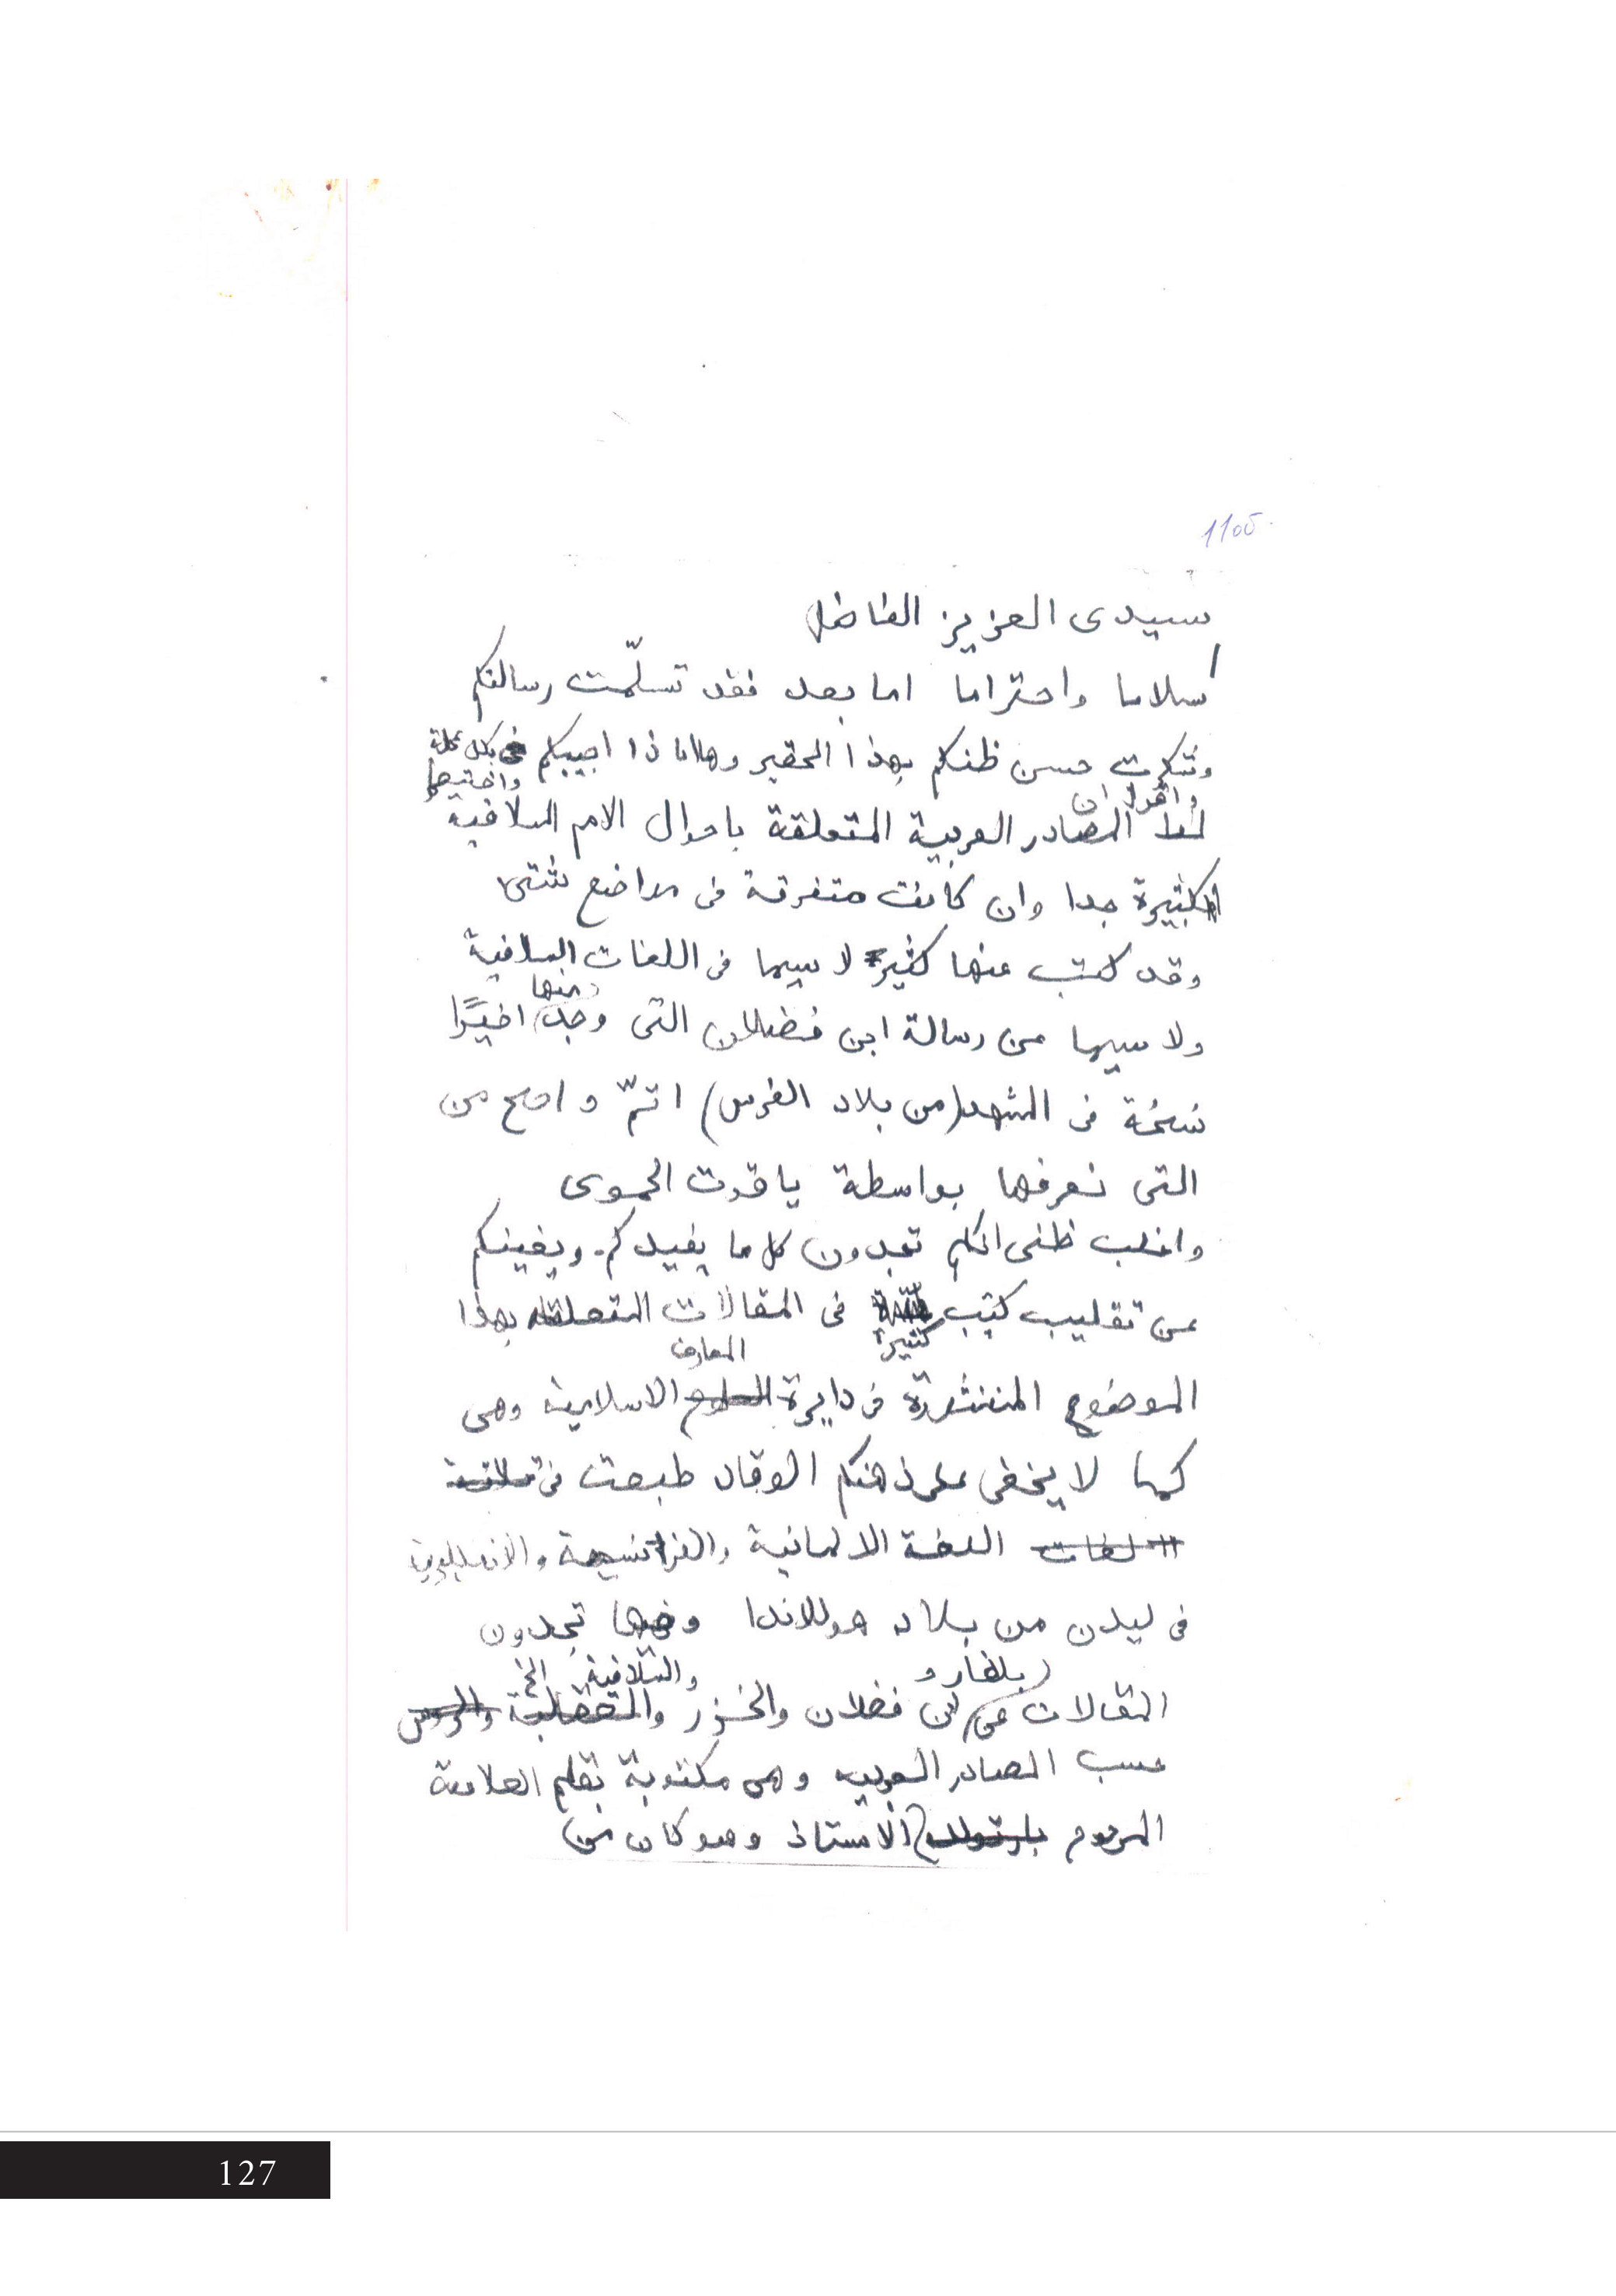 1105
سيدى العزيز الفاضل
سلاما واحتراما اما بعد فقد تسلّمت رسالتكم
وشكرت حسن ظنكم بهذا الحقير وهاانا ذا اجيبكم بكل عجلة
واقول ان
المصادر العربية المتعلقة باحوال الامم السلافية
كثيرة جدا وان كانت متفرقة فى مواضع شتى
وقد كتب عنها كثير لا سيما فى اللغات السلافية
منها
ولا سيما عن رسالة ابن فضلان التى وجد اخيرًا
نسخة فى المشهد (من بلاد الفرس) اتمّ واصح من
التى نعرفها بواسطة ياقوت الحموى
واغلب ظنى انكم تجدون كل ما يفيدكم ويغنيكم
عن تقليب كتب كثيرة فى المقالات المتعلقة بهذا
المعارف
الموضوع المنتشرة فى دايرة العلوم الاسلامية وهى
كما لا يخفى على ذهنكم الوقاد طبعت فى ثلاثة
لغات اللغة الالمانية والفرانسية والانجليزية
فى ليدن من بلاد هوللاندا وفيها تجدون
بلغار و والسلافية الخ
المقالات عن ابن فضلان والخزر والصقالبة والروس
حسب المصادر العربيه وهى مكتوبة بقلم العلامة
المرحوم بارتولد الاستاذ وهو كان من
127